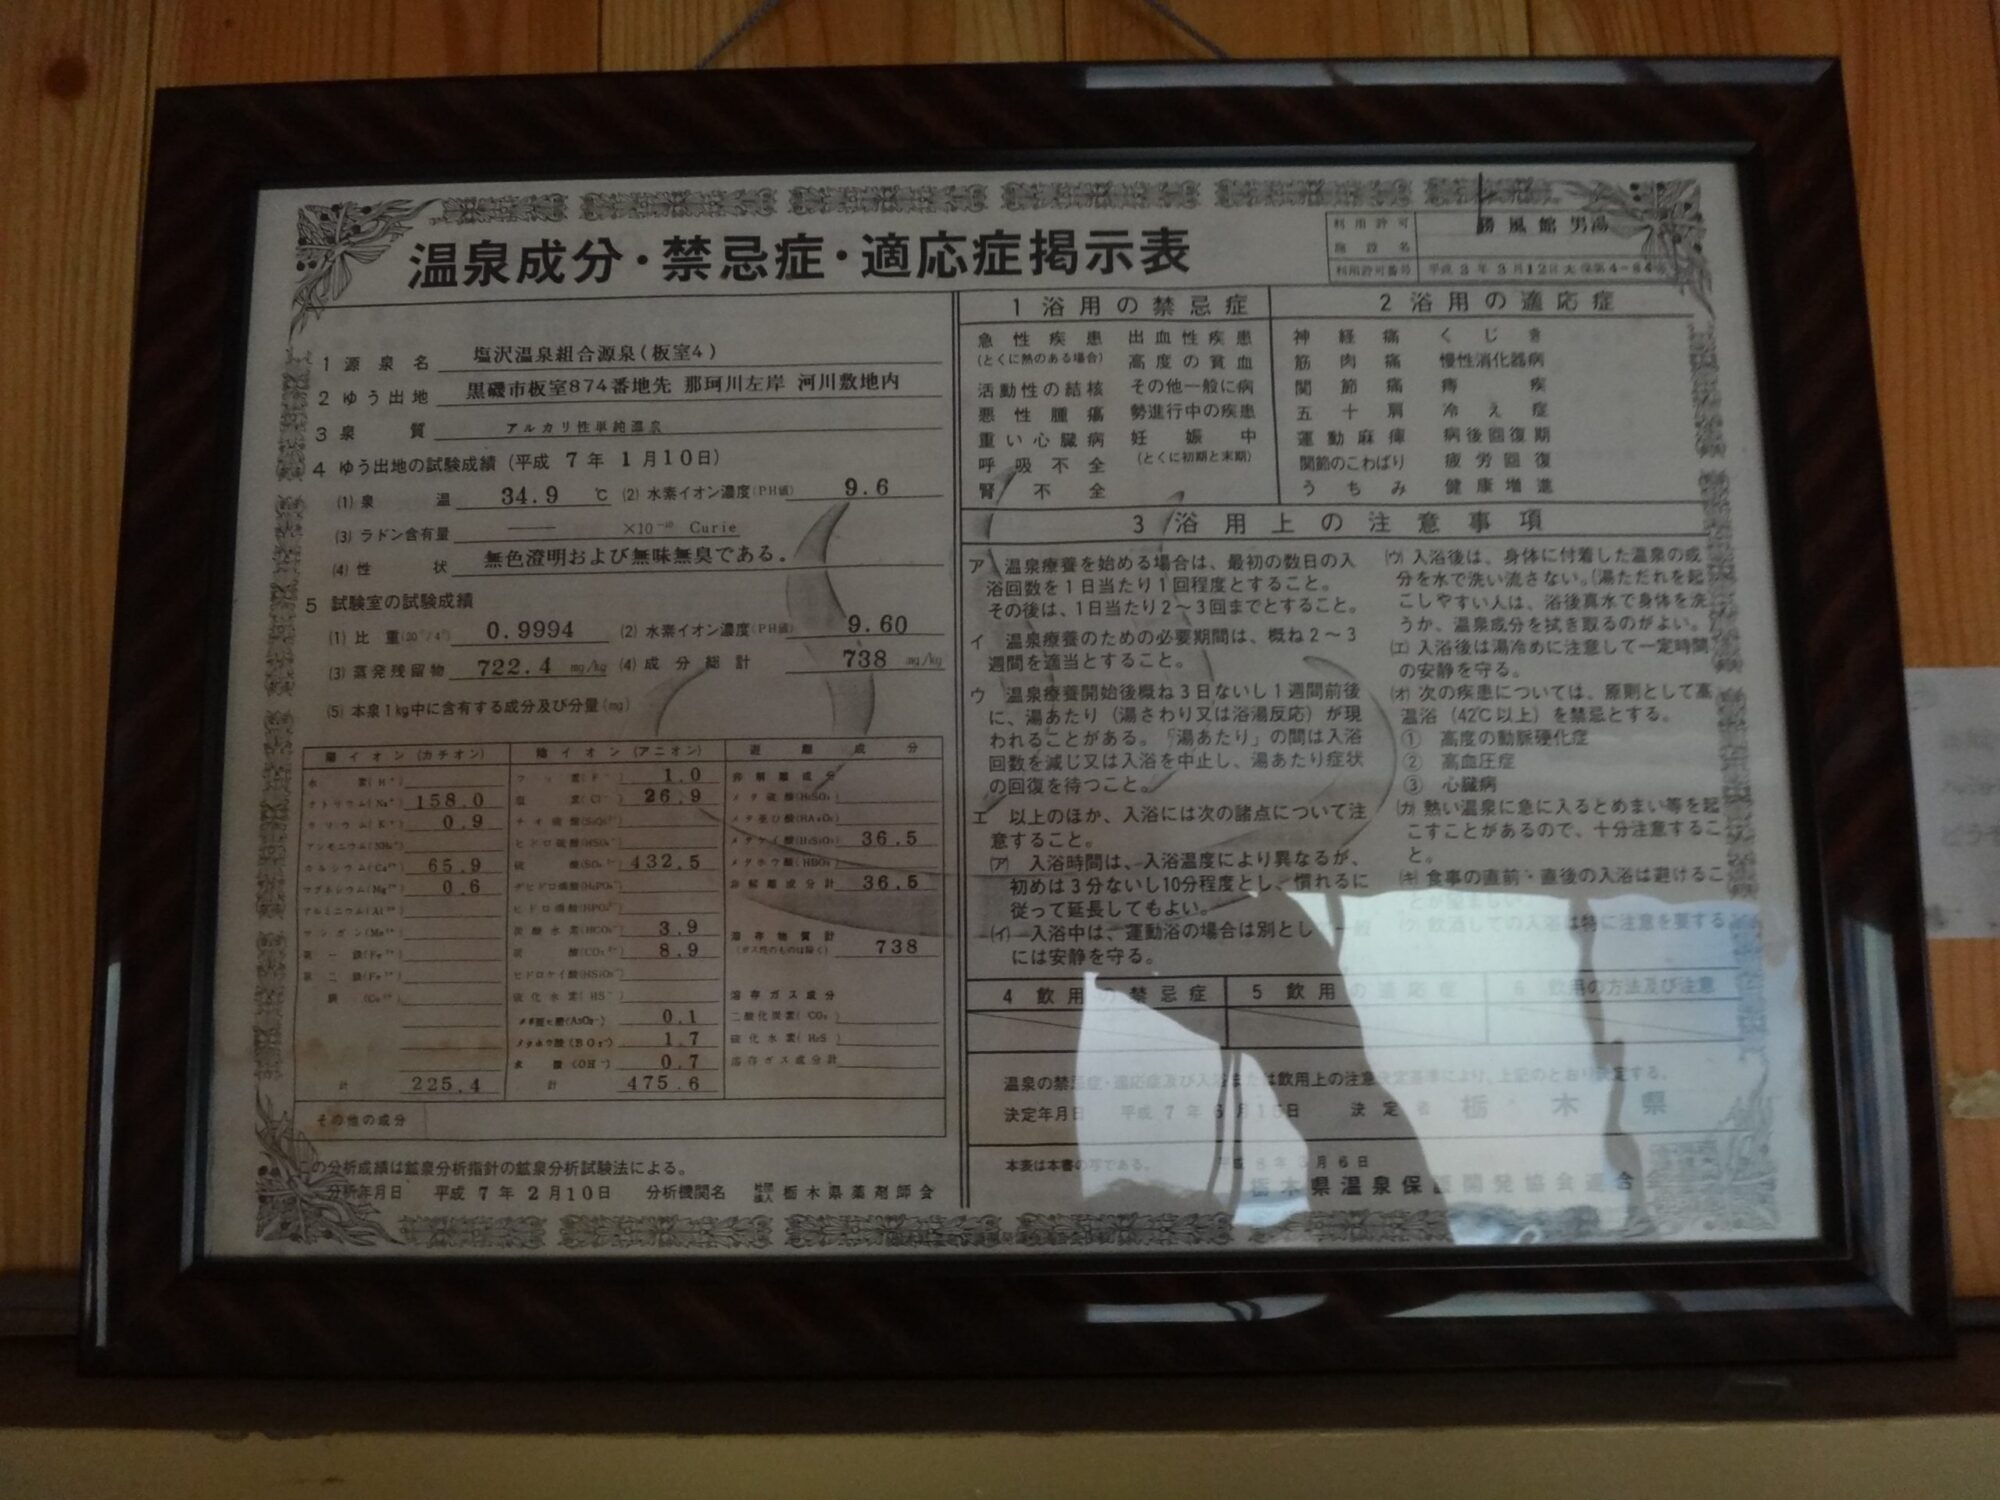 温泉成分・禁忌症・適応症掲示表
利用許可施設名 勝風館男湯
利用許可番号 平成3年3月12日
1 源泉名 塩沢温泉組合源泉(板室4)
2 ゆう出地 黒磯市板室874番地先 那珂川左岸 河川敷地内
3 泉質 アルカリ性単純温泉
4 ゆう出地の試験成績 (平成7年1月10日)
(1) 泉温 34.9 ℃ (2) 水素イオン濃度(PH値) 9.6
(3) ラドン含有量 ×10⁻¹⁰ Curie
(4) 性状 無色澄明および無味無臭である。
5 試験室の試験成績
(1) 比重(20°/4°) 0.9994 (2) 水素イオン濃度(PH値) 9.60
(3) 蒸発残留物 722.4 mg/kg (4) 成分総計 738 mg/kg
(5) 本泉1kg中に含有する成分及び分量(mg)
陽イオン(カチオン)
水素(H⁺)
ナトリウム(Na⁺) 158.0
カリウム(K⁺) 0.9
アンモニウム(NH₄⁺)
カルシウム(Ca²⁺) 65.9
マグネシウム(Mg²⁺) 0.6
アルミニウム(Al³⁺)
マンガン(Mn²⁺)
第一鉄(Fe²⁺)
第二鉄(Fe³⁺)
銅(Cu²⁺)
計 225.4
陰イオン(アニオン)
フッ素(F⁻) 1.0
塩素(Cl⁻) 26.9
チオ硫酸(S₂O₃²⁻)
ヒドロ硫酸(HSO₄⁻)
硫酸(SO₄²⁻) 432.5
ヂヒドロ燐酸(H₂PO₄⁻)
ヒドロ燐酸(HPO₄²⁻)
炭酸水素(HCO₃⁻) 3.9
炭酸(CO₃²⁻) 8.9
ヒドロケイ酸(HSiO₃⁻)
硫化水素(HS⁻)
メタ亜ヒ酸(AsO₂⁻) 0.1
メタホウ酸(BO₂⁻) 1.7
水酸(OH⁻) 0.7
計 475.6
遊離成分
非解離成分
メタ硫酸(H₂SO₄)
メタ亜ひ酸(HAsO₂)
メタケイ酸(H₂SiO₃) 36.5
メタホウ酸(HBO₂)
非解離成分計 36.5
溶存物質計 738
(ガス性のものは除く)
溶存ガス成分
二酸化炭素(CO₂)
硫化水素(H₂S)
溶存ガス成分計
その他の成分
この分析成績は鉱泉分析指針の鉱泉分析試験法による。
分析年月日 平成7年2月10日 分析機関名 社団法人 栃木県薬剤師会
1 浴用の禁忌症
急性疾患 出血性疾患
(とくに熱のある場合) 高度の貧血
活動性の結核 その他一般に病
悪性腫瘍 勢進行中の疾患
重い心臓病 妊娠中
呼吸不全 (とくに初期と末期)
腎不全
2 浴用の適応症
神経痛 くじき
筋肉痛 慢性消化器病
関節痛 痔疾
五十肩 冷え症
運動麻痺 病後回復期
関節のこわばり 疲労回復
うちみ 健康増進
3 浴用上の注意事項
ア 温泉療養を始める場合は、最初の数日の入
浴回数を1日当たり1回程度とすること。
その後は、1日当たり2〜3回までとすること。
イ 温泉療養のための必要期間は、概ね2〜3
週間を適当とすること。
ウ 温泉療養開始後概ね3日ないし1週間前後
に、湯あたり(湯さわり又は浴湯反応)が現
われることがある。「湯あたり」の間は入浴
回数を減じ又は入浴を中止し、湯あたり症状
の回復を待つこと。
エ 以上のほか、入浴には次の諸点について注
意すること。
(ア) 入浴時間は、入浴温度により異なるが、
初めは3分ないし10分程度とし、慣れるに
従って延長してもよい。
(イ) 入浴中は、運動浴の場合は別とし一般
には安静を守る。
(ウ) 入浴後は、身体に付着した温泉の成
分を水で洗い流さない。(湯ただれを起
こしやすい人は、浴後真水で身体を洗
うか、温泉成分を拭き取るのがよい。)
(エ) 入浴後は湯冷めに注意して一定時間
の安静を守る。
(オ) 次の疾患については、原則として高
温浴(42℃以上)を禁忌とする。
① 高度の動脈硬化症
② 高血圧症
③ 心臓病
(カ) 熱い温泉に急に入るとめまい等を起
こすことがあるので、十分注意するこ
と。
(キ) 食事の直前・直後の入浴は避けるこ
とが望ましい
(ク) 飲酒しての入浴は特に注意を要する
4 飲用の禁忌症 5 飲用の適応症 6 飲用の方法及び注意
温泉の禁忌症・適応症及び入浴または飲用上の注意決定基準により、上記のとおり決定する。
決定年月日 平成7年6月15日 決定者 栃木県
本表は本書の写である。 平成8年3月6日
栃木県温泉保護開発協会連合会